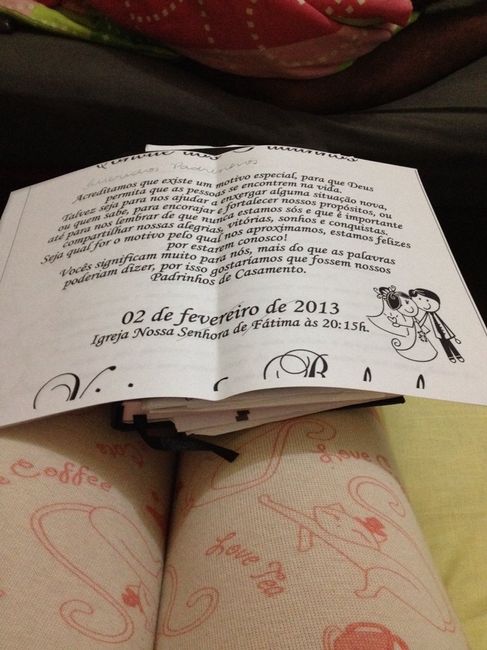 Queridos Padrinhos
Acreditamos que existe um motivo especial, para que Deus
permita que as pessoas se encontrem na vida.
Talvez seja para nos ajudar a enxergar alguma situação nova,
ou quem sabe, para encorajar e fortalecer nossos propósitos, ou
até para nos lembrar de que nunca estamos sós e que é importante
compartilhar nossas alegrias, vitórias, sonhos e conquistas.
Seja qual for o motivo pelo qual nos aproximamos, estamos felizes
por estarem conosco!
Vocês significam muito para nós, mais do que as palavras
poderiam dizer, por isso gostaríamos que fossem nossos
Padrinhos de Casamento.
02 de fevereiro de 2013
Igreja Nossa Senhora de Fátima às 20:15h.
Coffee
Cats
Love
Love Tea